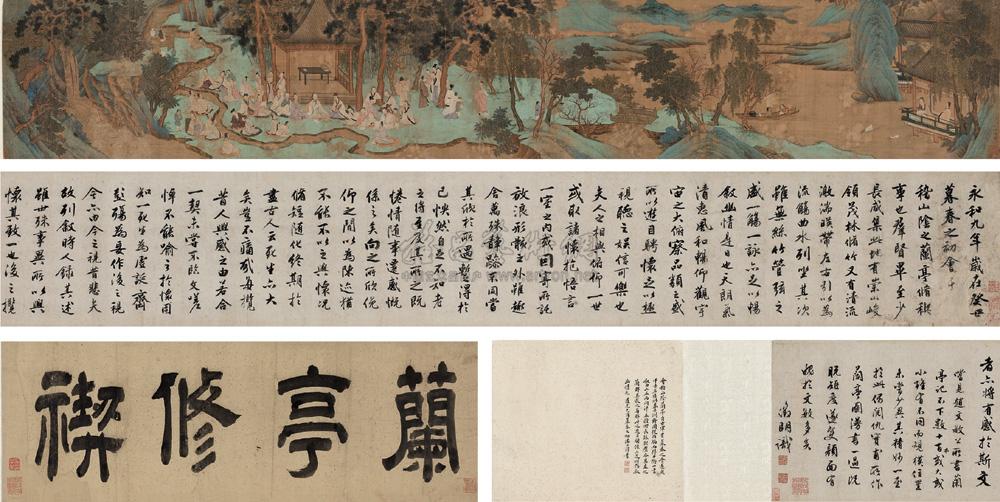 永和九年歲在癸丑
暮春之初會于
稽山陰之蘭亭脩禊
事也群賢畢至少
長咸集此地有崇山峻
領茂林脩竹又有清流
激湍暎帶左右引以為
流觴曲水列坐其次
雖無絲竹管弦之
盛一觴一詠亦足以暢
敘幽情是日也天朗氣
清惠風和暢仰觀宇
宙之大俯察品類之盛
所以遊目騁懷足以極
視聽之娛信可樂也
夫人之相與俯仰一世
或取諸懷抱悟言
一室之內或因寄所託
放浪形骸之外雖趣
舍萬殊靜躁不同當
其欣於所遇暫得於
己怏然自足不知老
之將至及其所之既
惓情隨事遷感慨
係之矣向之所欣俛
仰之間以為陳迹猶
不能不以之興懷況
脩短隨化終期於
盡古人云死生亦大
矣豈不痛哉每攬
昔人興感之由若合
一契未嘗不臨文嗟
悼不能喻之於懷固
知一死生為虛誕齊
彭殤為妄作後之視
今亦由今之視昔悲夫
故列敘時人錄其述
雖世殊事異所以興
懷其致一也後之攬
者亦將有感於斯文
嘗見趙文敏公所書蘭
亭記不下數十百或大或
小種不同而規模位置
未嘗少異其精妙一至
於此偶閱仇實甫所作
蘭亭圖漫書一過既
遂復顏面有
愧於文敏多矣
徵明識
蘭亭修禊